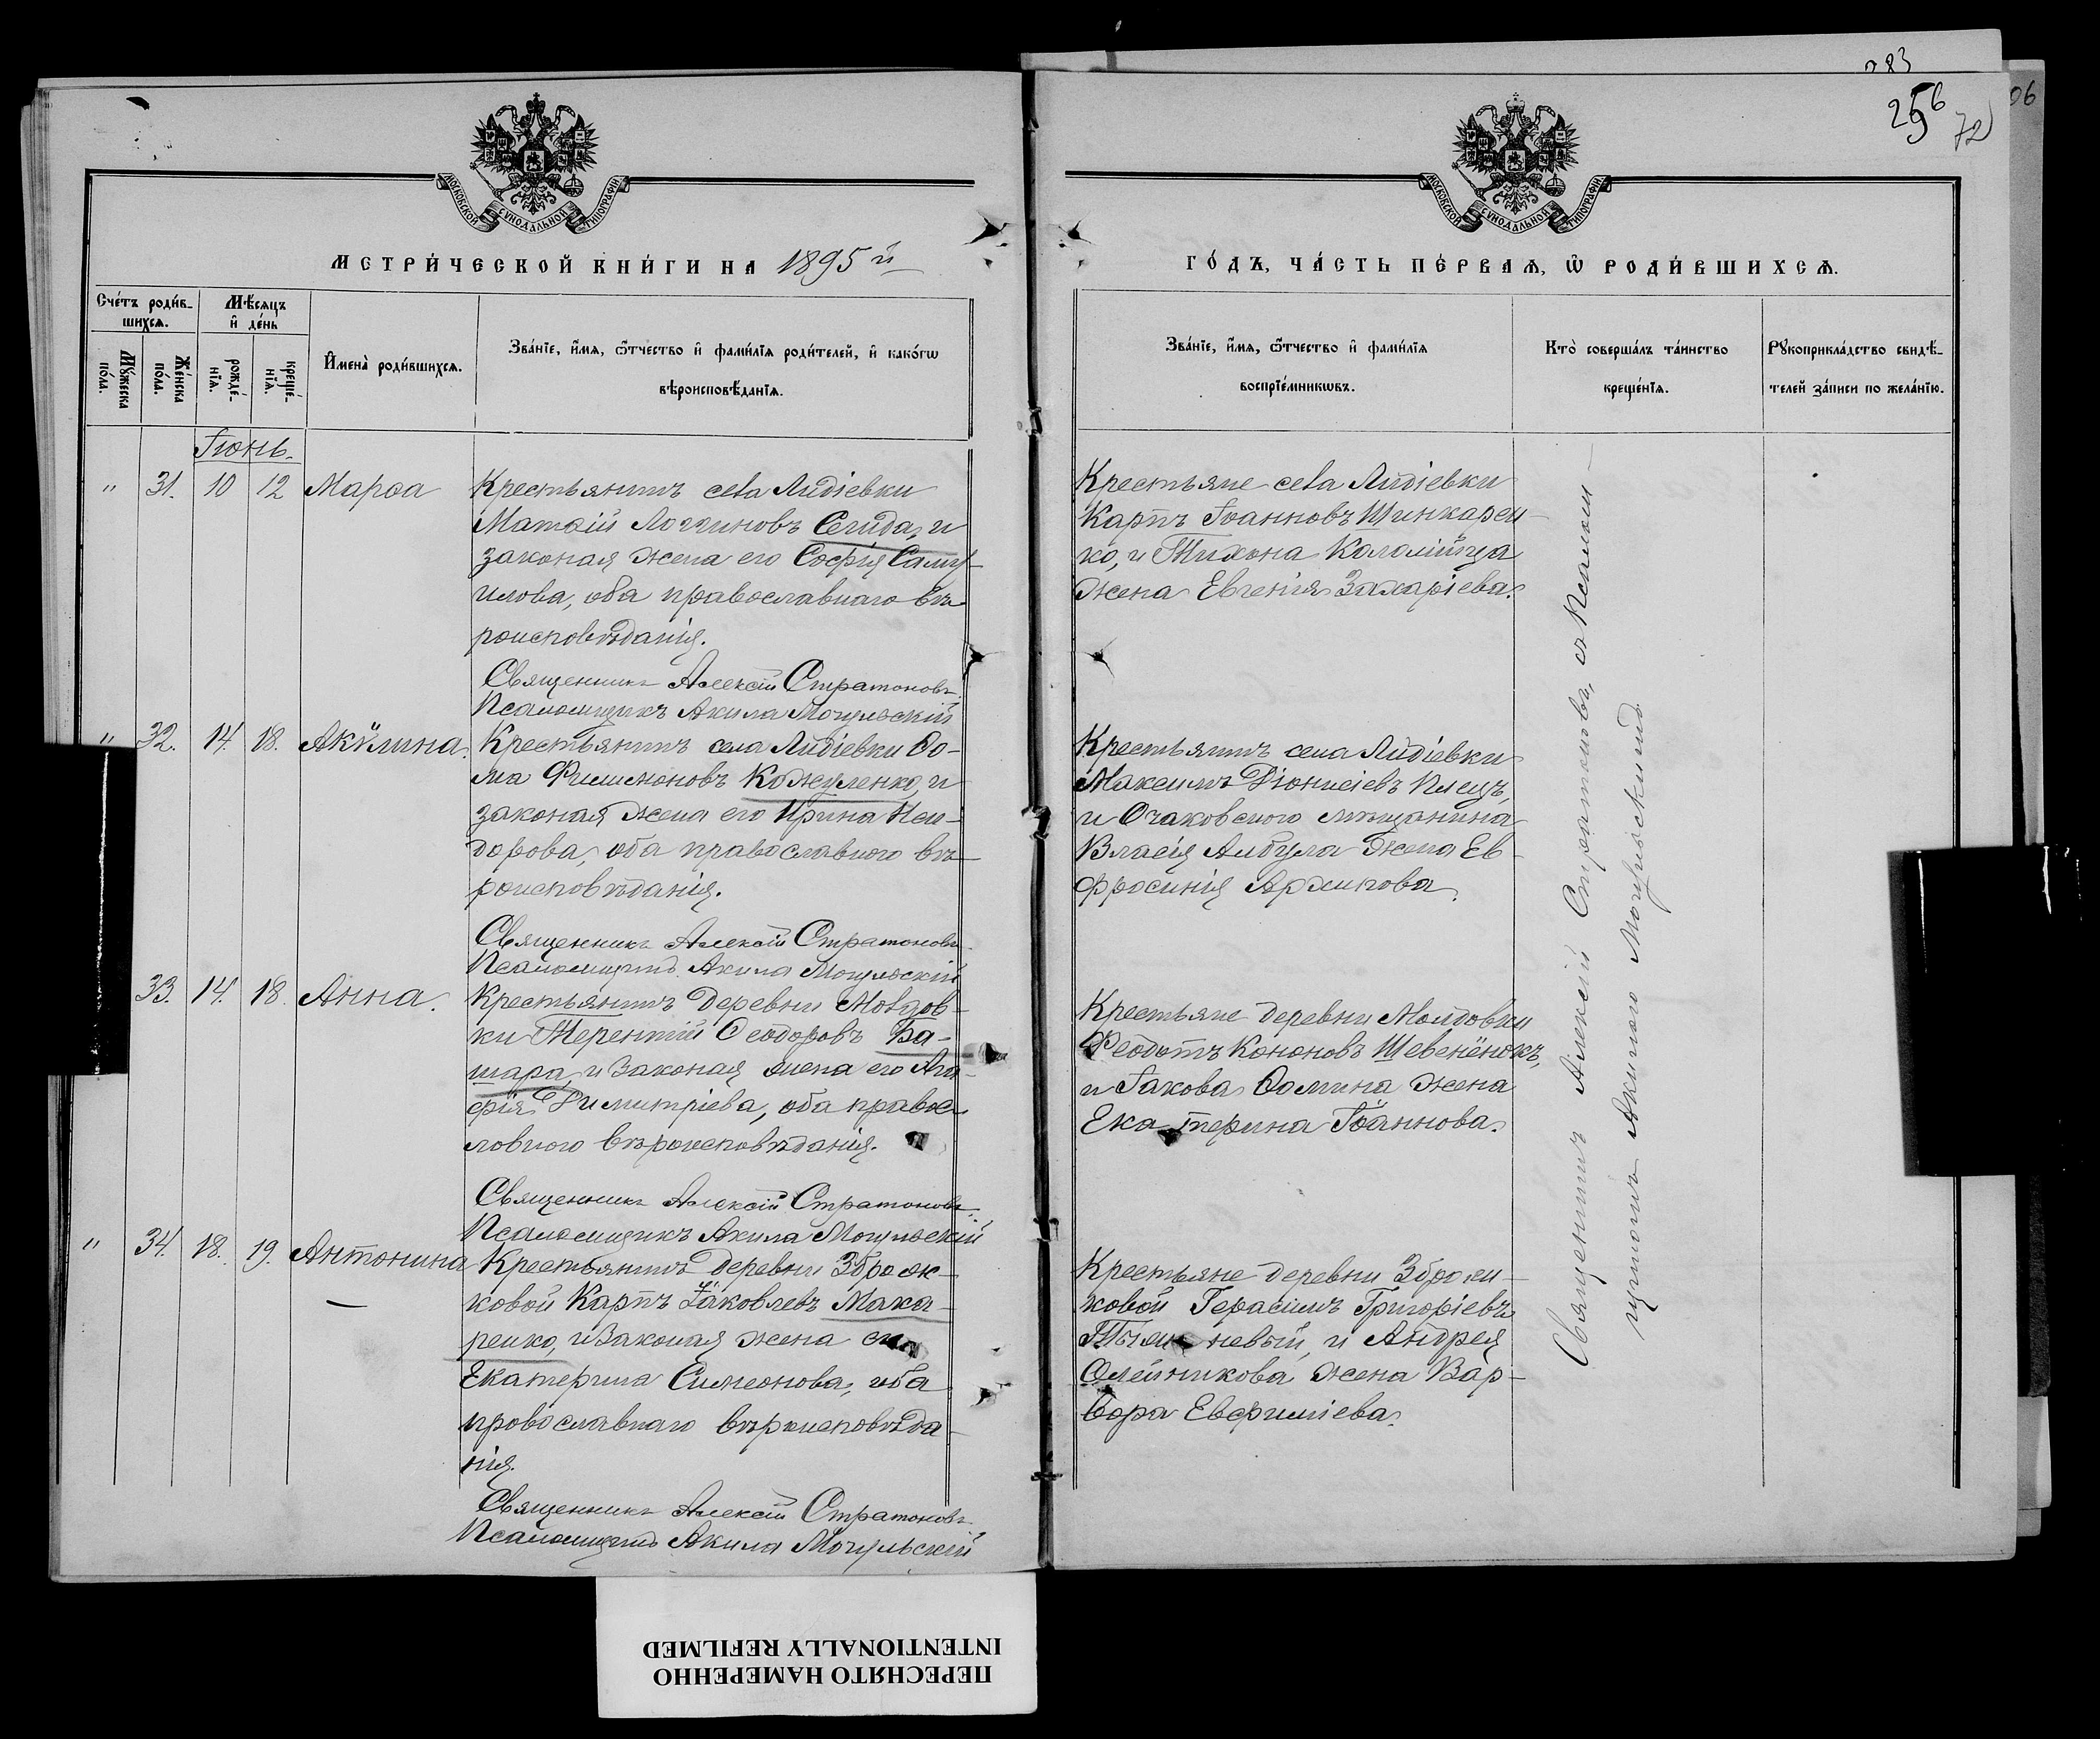 283
256
72
06
МОСКОВСКОЙ СѴНОДАЛЬНОЙ ТИПОГРАФІИ
МОСКОВСКОЙ СѴНОДАЛЬНОЙ ТИПОГРАФІИ
МЕТРИ́ЧЕСКОЙ КНИ́ГИ НА 1895 й
ГО́ДЪ, ЧА́СТЬ ПЕ́РВАѦ, Ѡ҆ РОДИ́ВШИХСѦ.
Сче́тъ роди́в-
шихсѧ.
Мꙋ́жеска по́ла.
Же́нска по́ла.
Мѣ́сѧцъ
и҆ де́нь
рожде́-
нїѧ.
креще́-
нїѧ.
И҆мена̀ роди́вшихсѧ.
Зва́нїе, и҆́мѧ, ѻ҆́тчество и҆ фами́лїѧ роди́телей, и҆ како́гѡ
вѣроисповѣ́данїѧ.
Зва́нїе, и҆́мѧ, ѻ҆́тчество и҆ фами́лїѧ
воспрїе́мникѡвъ.
Кто̀ соверша́лъ та́инство
креще́нїѧ.
Рꙋкоприкла́дство свидѣ́-
телей за́писи по жела́нїю.
Іюнь.
" 31. 10 12 Марѳа
Крестьянинъ села Лидіевки
Матѳій Логгиновъ Сегида, и
законая жена его Софія Саму-
илова, оба православнаго вѣ-
роисповѣданія.
Священникъ Алексій Стратоновъ
Псаломщикъ Акила Могульскій
Крестьяне села Лидіевки
Карпъ Іоанновъ Шинкарен-
ко, и Тихона Коломійца
жена Евгенія Захаріева.
" 32. 14. 18. Акѵлина.
Крестьянинъ села Лидіевки Ѳо-
ма Филимоновъ Кожуленко, и
законая жена его Ирина Иси-
дорова, оба православного вѣ-
роисповѣданія.
Священникъ Алексій Стратоновъ
Псаломщикъ Акила Могульскій
Крестьянинъ села Лидіевки
Максимъ Діонисіевъ
и Очаковского мѣщанина
Власія жена Ев-
фросинія Архипова.
33. 14. 18. Анна.
Крестьянинъ деревни Молдов-
ки Терентій Ѳеодоровъ Ба-
шара, и законая жена его Ага-
фія Димитріева, оба правос-
ловного вѣроисповѣданія.
Священникъ Алексій Стратоновъ
Псаломщикъ Акила Могульскій
Крестьяне деревни Молдовки
Феодотъ Кононовъ Шевенёнокъ,
и Іакова Ѳомина жена
Екатерина Іоаннова.
" 34. 18. 19. Антонина
Крестьянинъ деревни Зброж-
ковой Карпъ Іаковлевъ Мака-
ренко, и законая жена его
Екатерина Симеонова, оба
провославнаго вѣроисповѣда-
нія.
Священникъ Алексій Стратоновъ
Псаломщикъ Акила Могульскій
Крестьяне деревни Зброж-
ковой Герасимъ Григоріевъ
и Андрея
Олейникова жена Вар-
вора Евфиміева.
Священникъ Алексій Стратоновъ, съ Псалом-
щикомъ Акилою Могульскимъ
ПЕРЕСНЯТО НАМЕРЕННО
INTENTIONALLY REFILMED